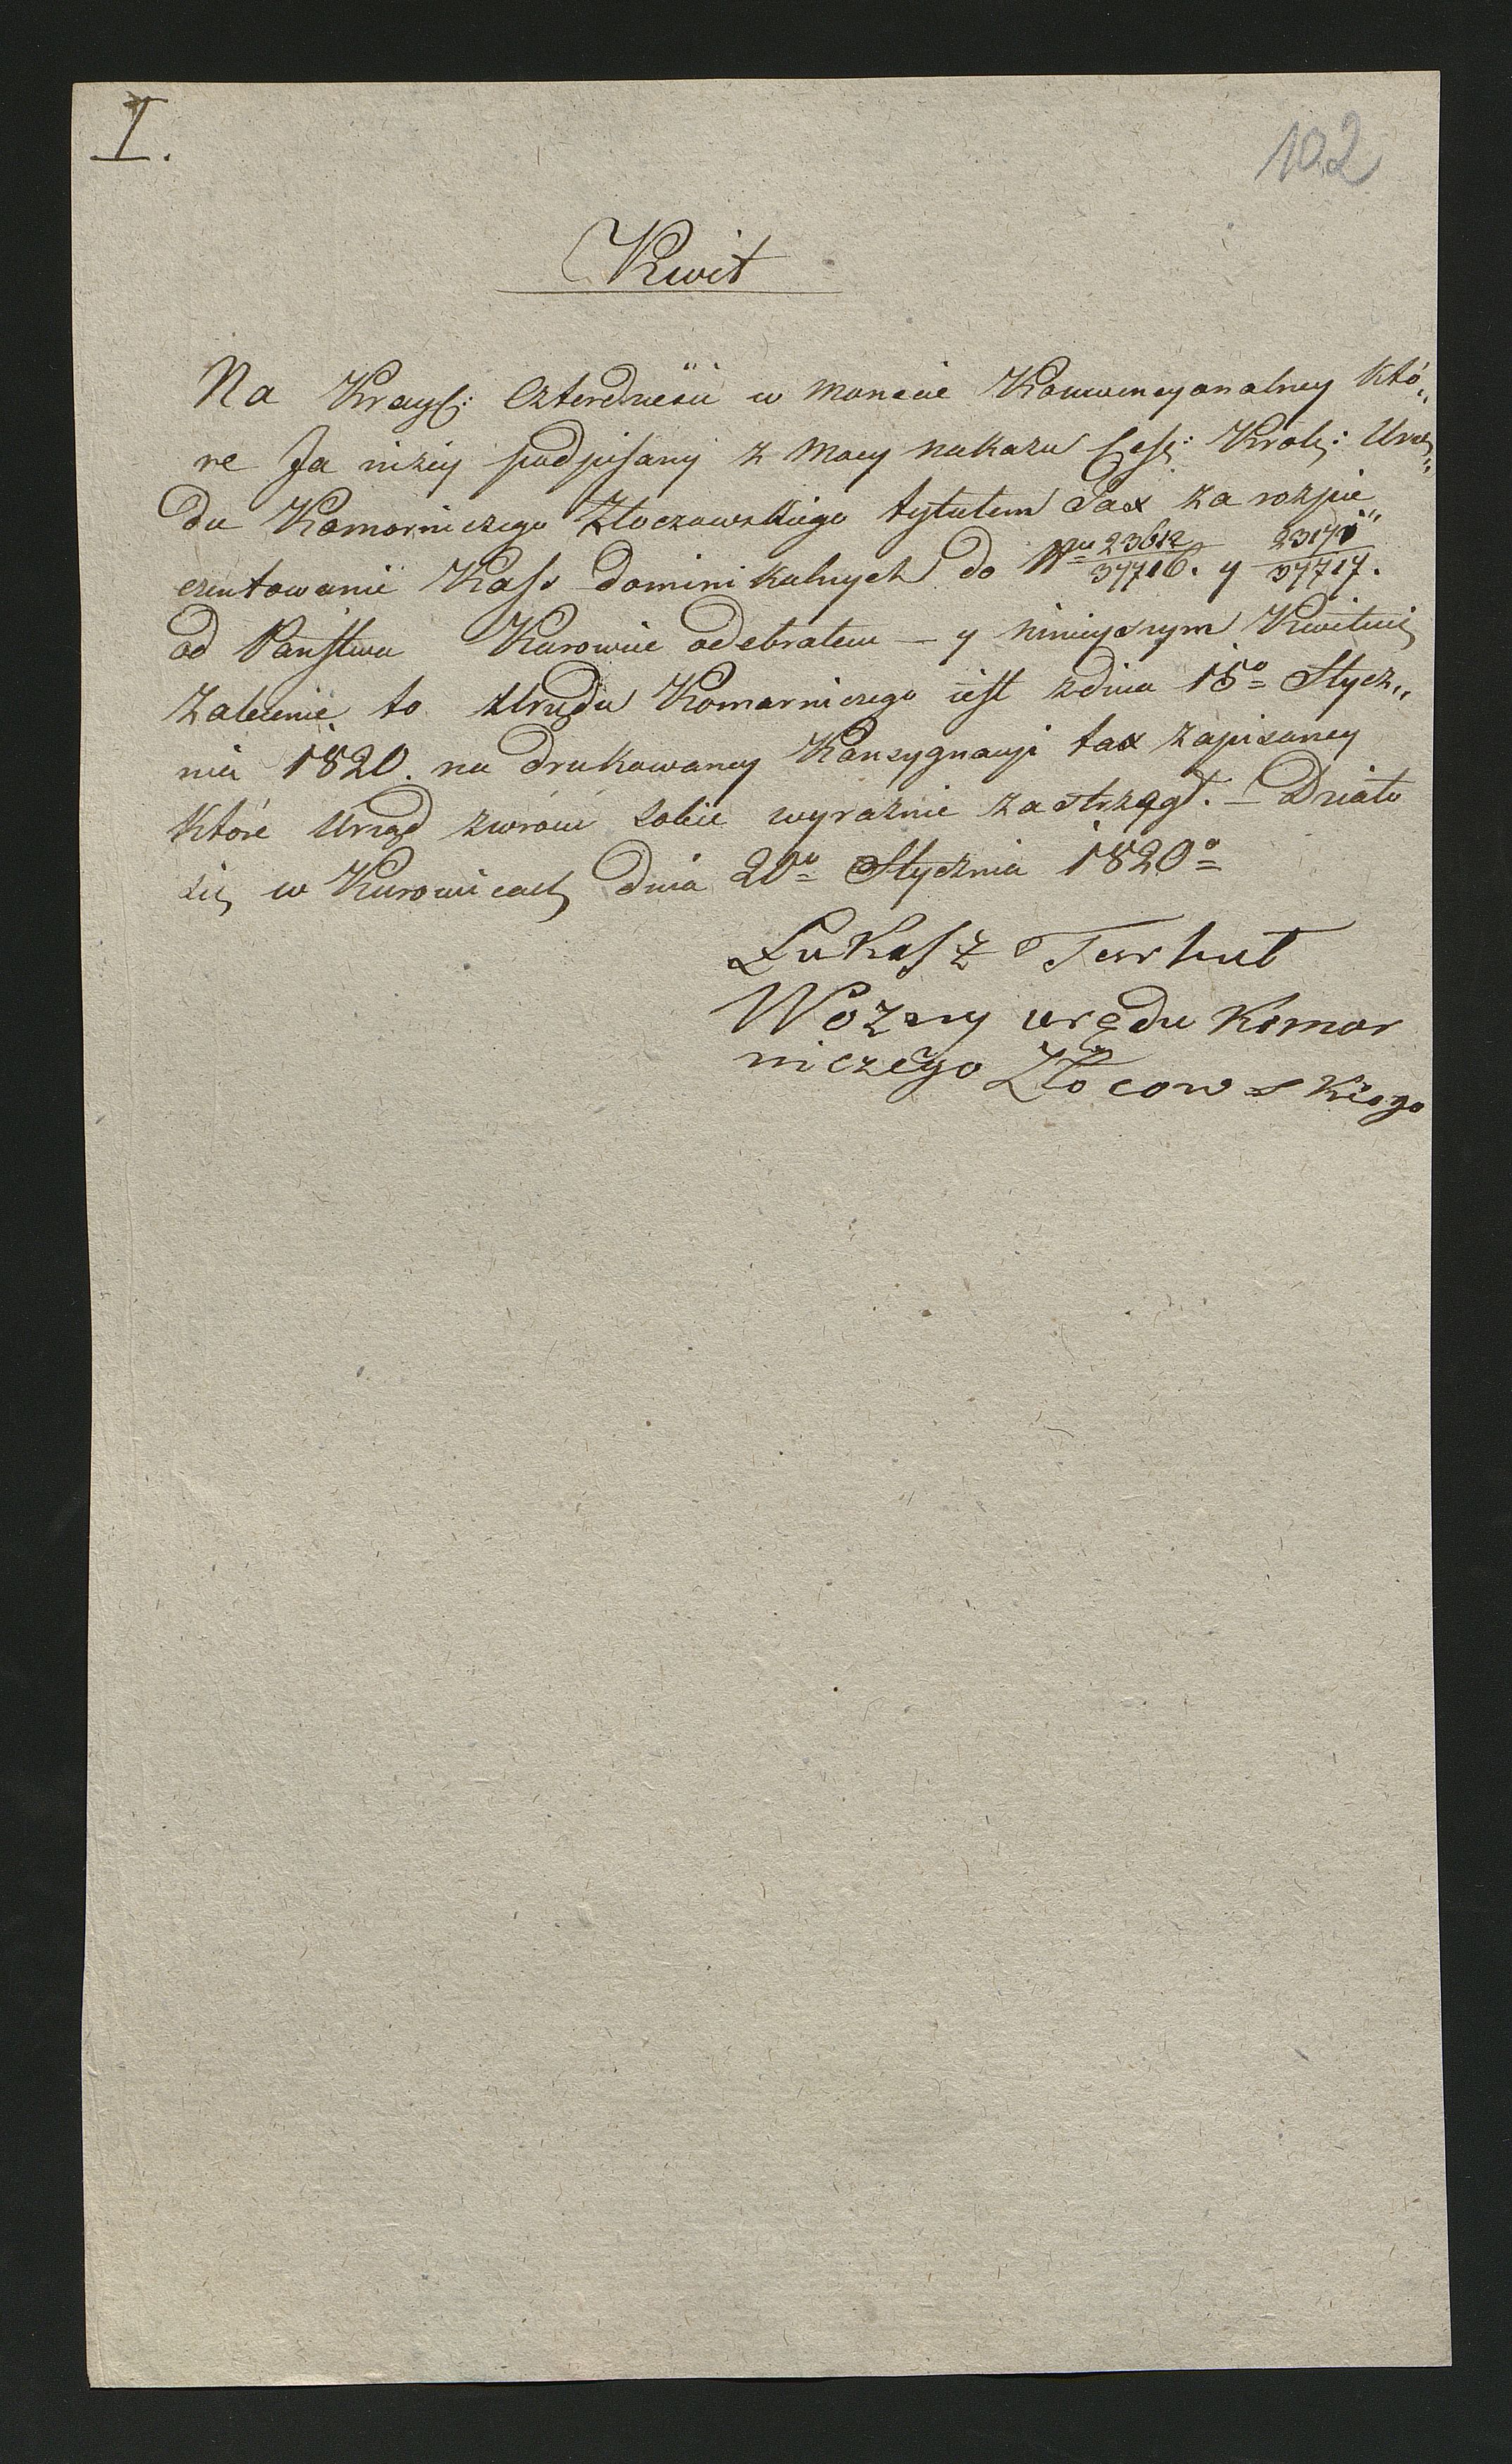 I.
102
Kwit
Na Krayc: Czterdzieści w monecie Konwencyonalney któ„
re Ja niżey podpisany z mocy nakazu Ces: Krol: Urzę„
du Komorniczego Złoczowskiego tytułem Tax za rozpie„
czentowanie Kass dominikalnych do Nru 23612/37716. y 37717.
od Państwa Kurowic odebrałem – y ninieyszym Kwituię
Zalecenie to Urzędu Komorniczego iest z dnia 15º Stycz„
nia 1820. na drukowaney Konsygnacyi tax zapisaney
które Urząd zwrócić sobie wyraźnie zastrzegł. – Działo
się w Kurowicach dnia 20º Stycznia 1820º
Łukasz
Wozny urędu Komor
niczego Złocowskiego